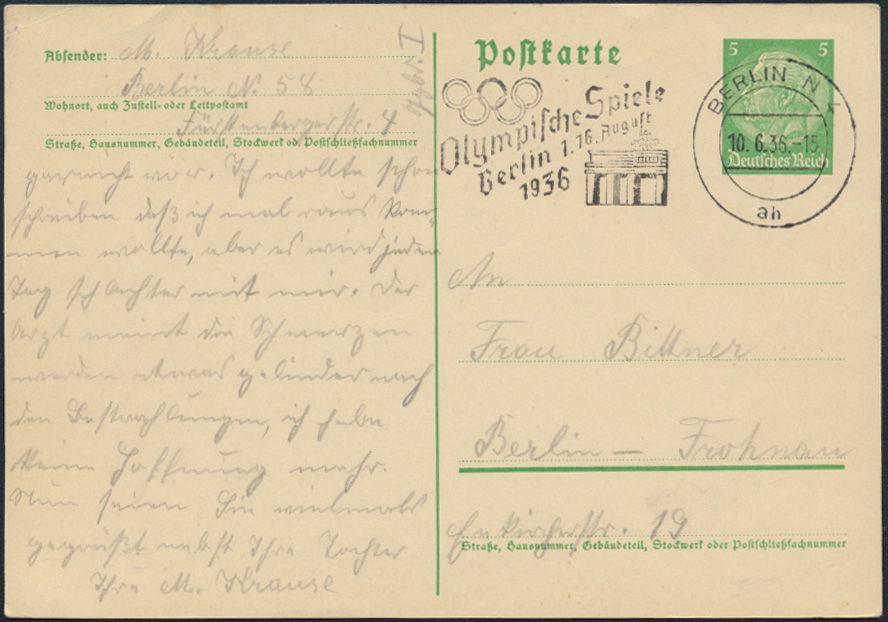 Absender: M. Krause
Berlin N. 58
Wohnort, auch Zustell- oder Leitpostamt
Fürstenbergerstr. 4
Straße, Hausnummer, Gebäudeteil, Stockwerk od. Postschließfachnummer
garnicht vor. Ich wollte schon
schreiben daß ich mal raus kom-
men wollte, aber es wird jeden
Tag schlechter mit mir. Der
Arzt meint die Schmerzen
werden etwas gelinder nach
den Bestrahlungen, ich habe
keine Hoffnung mehr.
Nun seien Sie vielmals
gegrüßt nebst Ihre Tochter
Ihre M. Krause
Postkarte
Olympische Spiele
Berlin 1.-16. August
1936
5 5
BERLIN N 4
10.6.36.-15
Deutsches Reich
ah
An
Frau Bittner
Berlin – Frohnau
Enkircherstr. 19
Straße, Hausnummer, Gebäudeteil, Stockwerk oder Postschließfachnummer